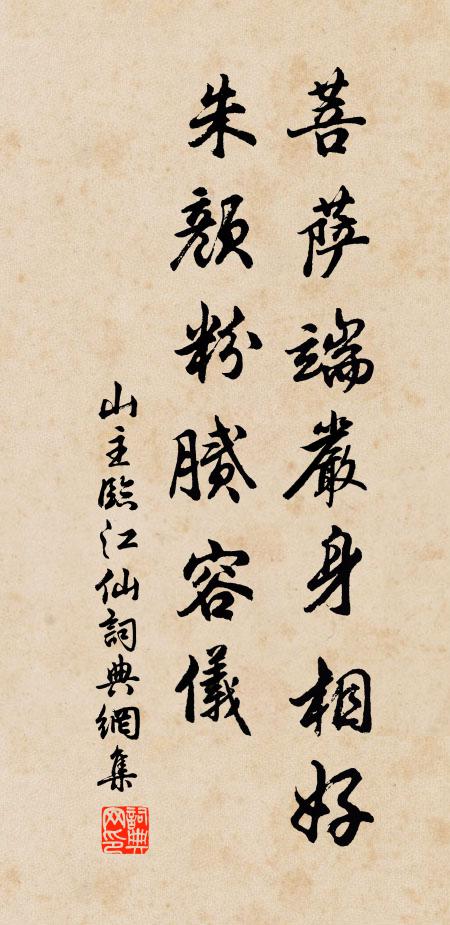 菩薩端嚴身相好
朱顏粉膩容儀
山主臨江仙詞典網集
詞典网印